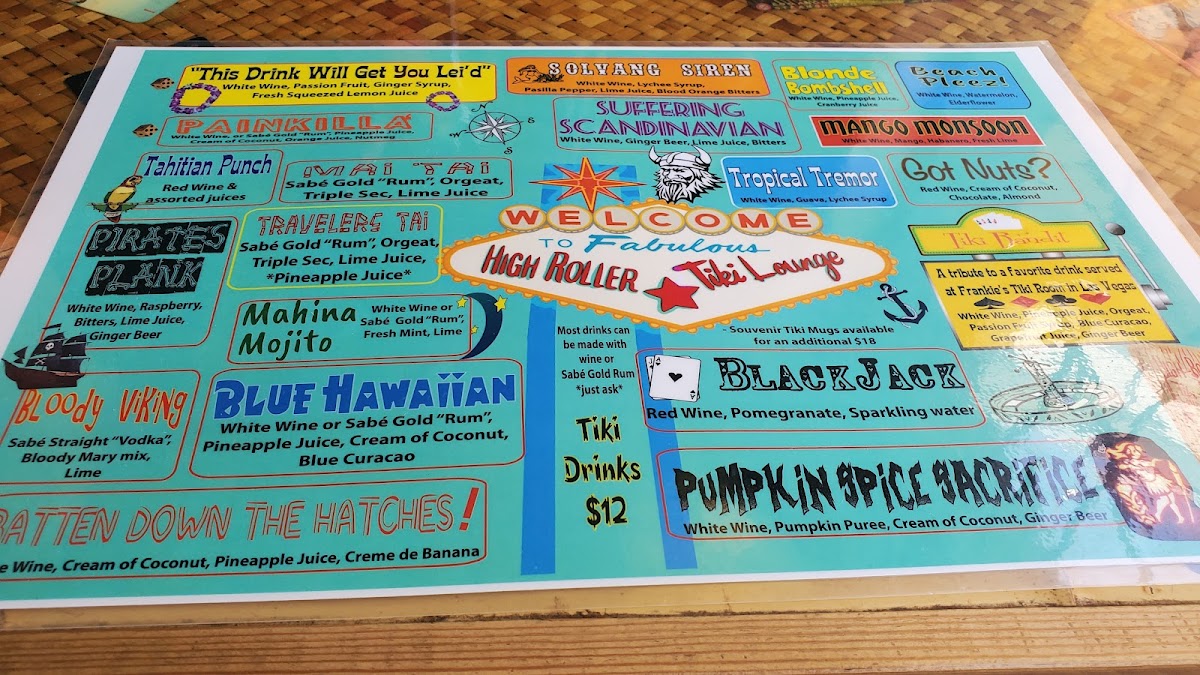 "This Drink Will Get You Lei'd"
White Wine, Passion Fruit, Ginger Syrup,
Fresh Squeezed Lemon Juice
SOLVANG SIREN
White Wine, Lychee Syrup,
Pasilla Pepper, Lime Juice, Blood Orange Bitters
Blonde
Bombshell
White Wine, Pineapple Juice,
Cranberry Juice
Beach
Pleez!
White Wine, Watermelon,
Elderflower
PAINKILLA
White Wine, or Sabé Gold "Rum", Pineapple Juice,
Cream of Coconut, Orange Juice, Nutmeg
SUFFERING
SCANDINAVIAN
White Wine, Ginger Beer, Lime Juice, Bitters
MANGO MONSOON
White Wine, Mango, Habanero, Fresh Lime
Tahitian Punch
Red Wine &
assorted juices
MAI TAI
Sabé Gold "Rum", Orgeat,
Triple Sec, Lime Juice
Tropical Tremor
White Wine, Guava, Lychee Syrup
Got Nuts?
Red Wine, Cream of Coconut,
Chocolate, Almond
PIRATES
PLANK
White Wine, Raspberry,
Bitters, Lime Juice,
Ginger Beer
TRAVELERS TAI
Sabé Gold "Rum", Orgeat,
Triple Sec, Lime Juice,
*Pineapple Juice*
WELCOME
TO Fabulous
HIGH ROLLER Tiki Lounge
Tiki Bandit
A tribute to a favorite drink served
at Frankie's Tiki Room in Las Vegas
White Wine, Pineapple Juice, Orgeat,
Passion Fruit, Blue Curacao,
Grapefruit Juice, Ginger Beer
Mahina
Mojito
White Wine or
Sabé Gold "Rum",
Fresh Mint, Lime
Most drinks can
be made with
wine or
Sabé Gold Rum
*just ask*
- Souvenir Tiki Mugs available
for an additional $18
BLOODY VIKING
Sabé Straight "Vodka",
Bloody Mary mix,
Lime
BLUE HAWAIIAN
White Wine or Sabé Gold "Rum",
Pineapple Juice, Cream of Coconut,
Blue Curacao
BLACKJACK
Red Wine, Pomegranate, Sparkling water
Tiki
Drinks
$12
BATTEN DOWN THE HATCHES!
Wine, Cream of Coconut, Pineapple Juice, Creme de Banana
PUMPKIN SPICE SACRIFICE
White Wine, Pumpkin Puree, Cream of Coconut, Ginger Beer